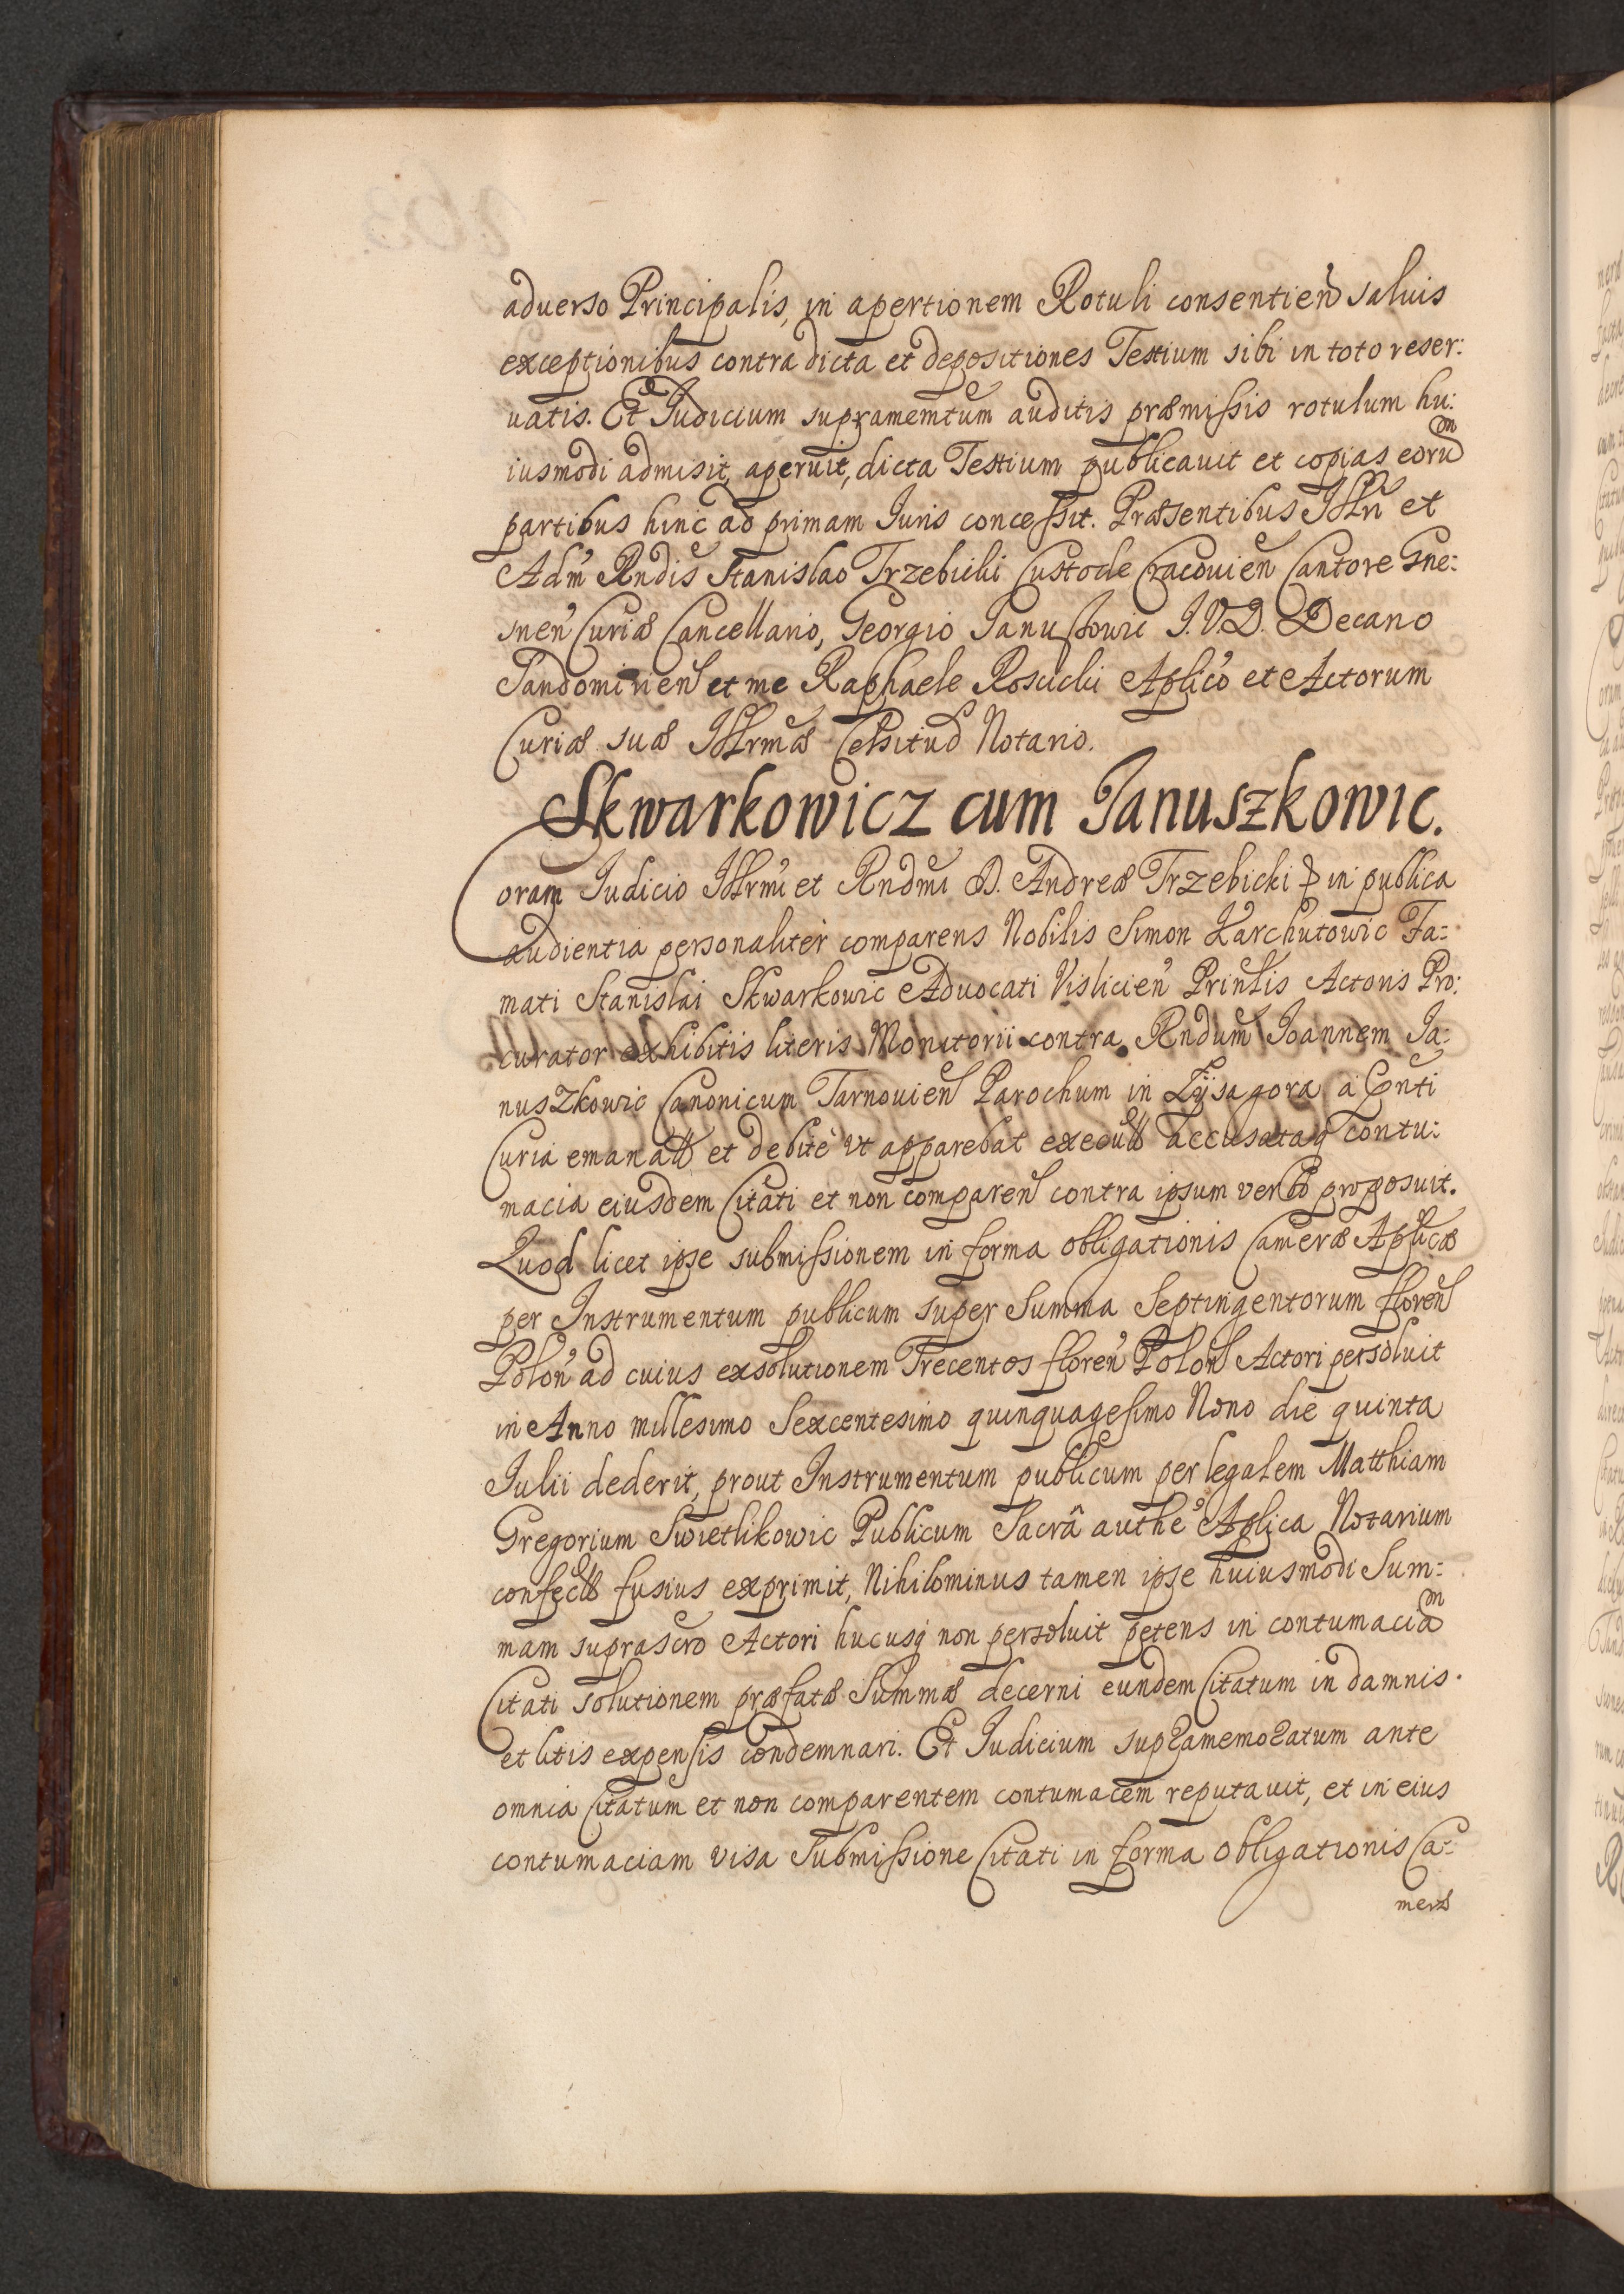 aduerso Principalis, in apertionem Rotuli consentień saluis
exceptionibus contra dicta et depositiones Testium sibi in toto reser:
uatis. Et Judicium supramemtum auditis præmissis rotulum hu:
iusmodi admisit, aperuit, dicta Testium publicauit et copias eorum
partibus hinc ad primam Iuris concessit. Præsentibus Illrī et
Adm̃ Rndis Stanislao Trzebicki Custode Cracouień Cantore Gne:
snen̄ Curiæ Cancellario, Georgio Januszowic J.V.D. Decano
Sandomirień et me Raphaele Rosicki Aplico et Actorum
Curiæ suæ Illrmæ Celsitud Notario.
Skwarkowicz cum Januszkowic.
Coram Iudicio Illrmi et Rndmi D. Andreæ Trzebicki in publica
audientia personaliter comparens Nobilis Simon Karchutowic Fa:
mati Stanislai Skwarkowic Aduocati Vislicień Prinlis Actoris Pro:
curator exhibitis literis Monitorii contra Rndum Ioannem Ja:
nuszkowic Canonicum Tarnouień Parochum in Lÿsagora a Cnti
Curia emanatt et debite vt apparebat executt accusataq contu:
macia eiusdem Citati et non comparen contra ipsum verbo proposuit.
Quod licet ipse submissionem in forma obligationis Cameræ Aplicæ
per Instrumentum publicum super Summa Septingentorum floren
Polon̄ ad cuius exsolutionem Trecentos floren̄ Polon Actori persoluit
in Anno millesimo Sexcentesimo quinquagesimo Nono die quinta
Julii dederit, prout Instrumentum publicum per legalem Matthiam
Gregorium Swietlikowic Publicum Sacrâ authe Aplica Notarium
confectt fusius exprimit, Nihilominus tamen ipse huiusmodi Sum:
mam suprascro Actori hucusq non persoluit petens in contumaciam
Citati solutionem præfatæ Summæ decerni eundem Citatum in damnis
et litis expensis condemnari. Et Judicium supramemoratum ante
omnia Citatum et non comparentem contumacem reputauit, et in eius
contumaciam visa Submissione Citati in forma obligationis Ca:
meræ